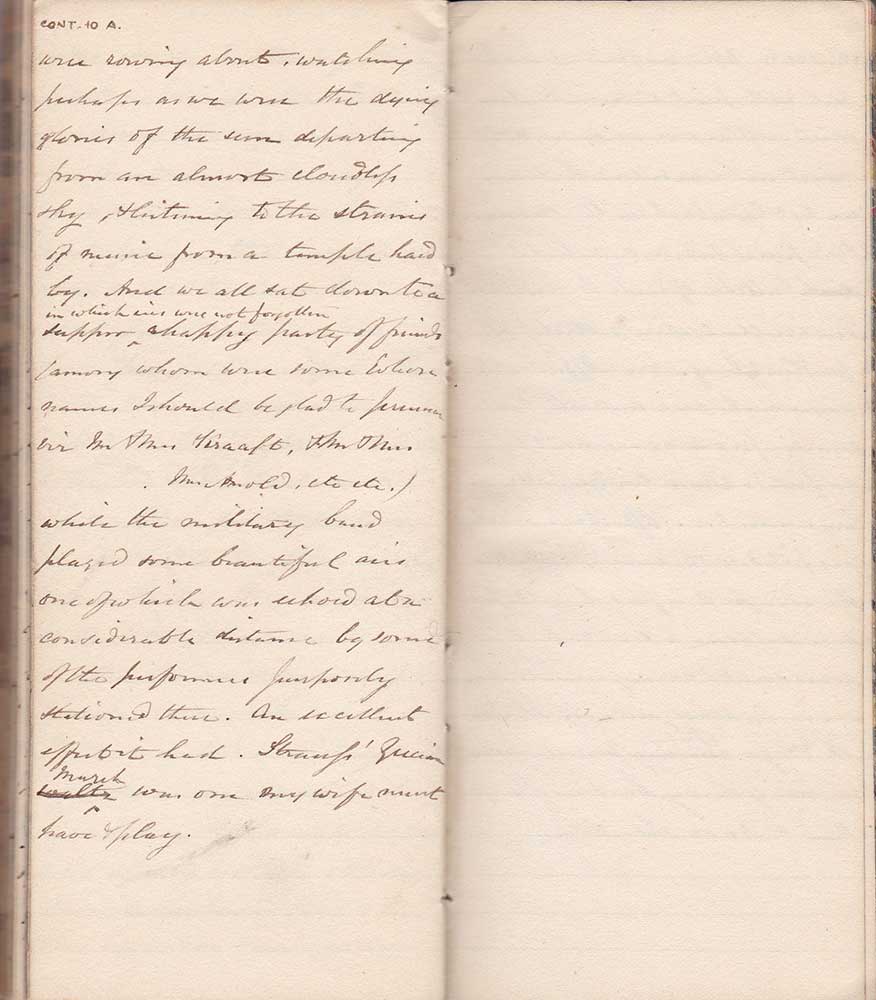 CONT. 10 A.
were rowing about, watching
perhaps as we were the dying
glories of the sun departing
from an almost cloudless
sky, & listening to the strains
of music from a temple hard
by. And we all sat down to a
in which ices were not forgotten
supper a happy party of friends
(among whom were some whose
names I should be glad to
Mr & Mrs & Mr & Mrs
Mrs Arnold, etc etc.)
while the military band
played some beautiful airs
one of which was echoed at a
considerable distance by some
of the performers purposely
stationed there. An excellent
effect it had. Strauss'
March
waltz was one my wife must
have & play.